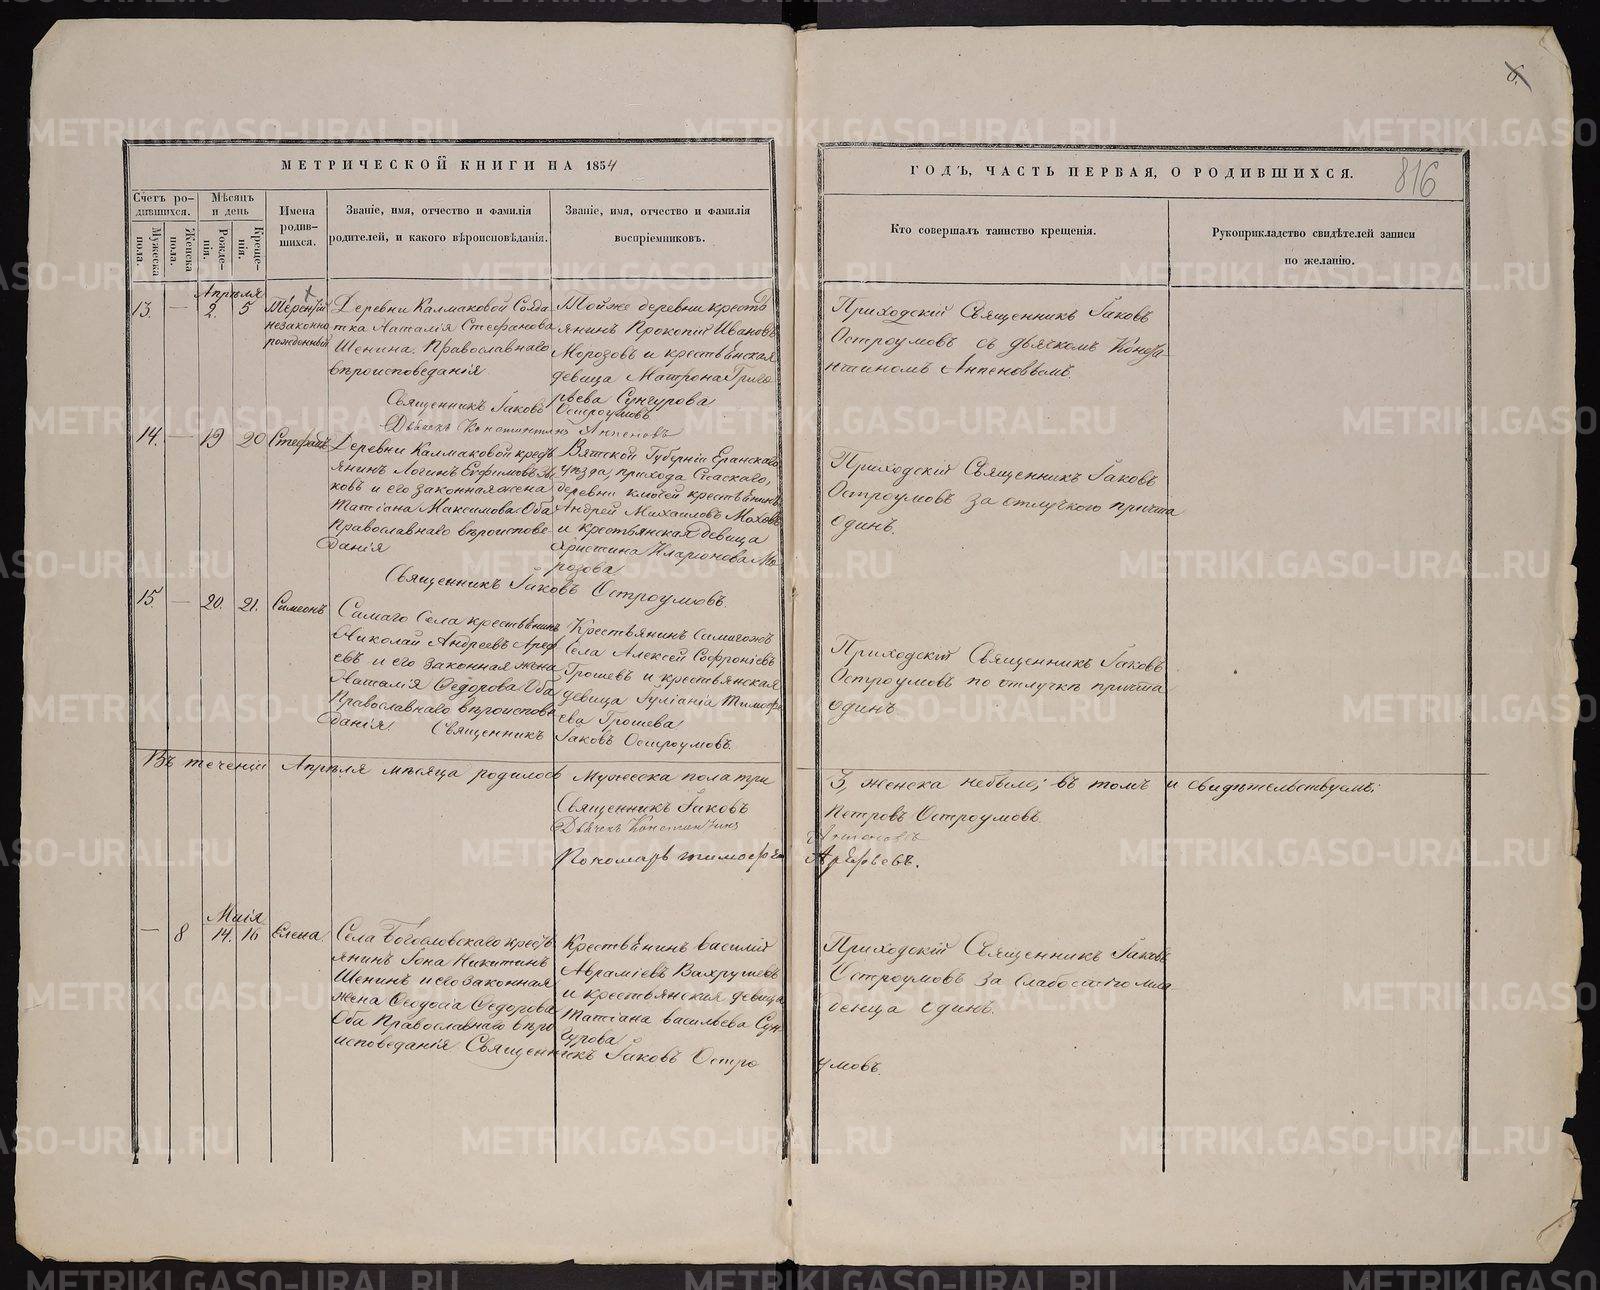 МЕТРИЧЕСКОЙ КНИГИ НА 1854
ГОДЪ, ЧАСТЬ ПЕРВАЯ, О РОДИВШИХСЯ.
816
Счетъ ро-
дившихся.
Мужеска
пола.
Женска
пола.
Мѣсяцъ
и день
Рожде-
нія.
Креще-
нія.
Имена
родив-
шихся.
Званіе, имя, отчество и фамилія
родителей, и какого вѣроисповѣданія.
Званіе, имя, отчество и фамилія
воспріемниковъ.
Кто совершалъ таинство крещенія.
Рукоприкладство свидѣтелей записи
по желанію.
Апрѣля
13. — 2. 5
Терентій
незаконно
рожденный
Деревни Калмаковой Солда
тка Наталія Стефанова
Шенина. Православнаго
вѣроисповеданія
Тойже деревни крестъ
янинъ Прокопій Ивановъ
Морозовъ и крестьянская
девица Матрона Григо
рьева Сунгурова
Приходскій Священникъ Іаковъ
Остроумовъ съ дьячкомъ Конста
нтиномъ
Священникъ Іаковъ Остроумовъ
Дьячекъ Константинъ
14. — 19 20 Стефанъ
Деревни Калмаковой крест
янинъ Логинъ Евфимовъ
ковъ и его законная жена
Татіана Максимова Оба
Православнаго вѣроиспове
данія
Вятской Губерніи Еранскаго
уѣзда, прихода Спаскаго,
деревни ключей крестьянинъ
Андрей Михаиловъ Моховъ
и крестьянская девица
Христина Иларіонова Мо
розова
Приходскій Священникъ Іаковъ
Остроумовъ за отлучкого причта
одинъ.
Священникъ Іаковъ Остроумовъ.
15. — 20. 21. Симеонъ
Самаго Села крестьянинъ
Николай Андреевъ Ареф
евъ и его законная жена
Наталія Ѳедорова Оба
Православнаго вѣроиспове
данія.
Крестьянинъ Самагожъ
Села Алексей Софроніевъ
Грошевъ и крестьянская
девица Іуліанія Тимофе
ева Грошева
Приходскій Священникъ Іаковъ
Остроумовъ по отлучкѣ причта
одинъ
Священникъ Іаковъ Остроумовъ.
Въ теченіи Апрѣля мѣсяца родилось Мужеска пола три
3, женска небыло; въ томъ и свидѣтельствуемъ:
Священникъ Іаковъ Петровъ Остроумовъ.
Дьячекъ Константинъ
Пономарь тимофей Арефьевъ.
Маія
— 8 14. 16 Елена
Села Боголовскаго крестъ
янинъ Іона Никитинъ
Шенинъ и его законная
жена Ѳеодосіа Ѳедорова
Оба Православнаго вѣро
исповеданія.
Крестьянинъ василій
Авраміевъ Вахрушевъ
и крестьянская девица
Татіана васильева Сун
гурова
Приходскій Священникъ Іаковъ
Остроумовъ за слабостію мла
денца одинъ.
Священникъ Іаковъ Остро
умовъ.